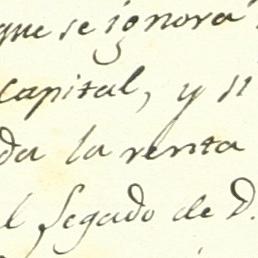 que se ignora
capital, y si
da la renta
l Legado de D.